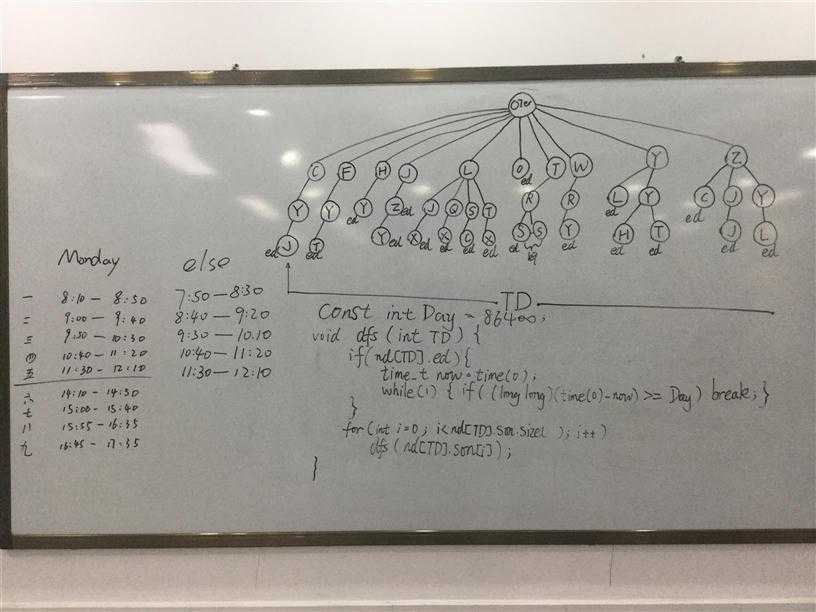 OIer
C F H J L O T W Y Z
ed
Y Y Y Z ed J Q S T R R L Y C J Y
ed ed ed
J T Y ed X X C X S S Y H T J L
ed ed ed ed ed ed ed ed ed ed ed ed
Monday else
一 8:10 — 8:50 7:50 — 8:30
二 9:00 — 9:40 8:40 — 9:20
三 9:50 — 10:30 9:30 — 10.10
四 10:40 — 11:20 10:40 — 11:20
五 11:30 — 12:10 11:30 — 12:10
六 14:10 — 14:50
七 15:00 — 15:40
八 15:55 — 16:35
九 16:45 — 17:35
TD
Const int Day = 86400;
void dfs (int TD) {
if(nd[TD].ed){
time_t now = time(0);
while(1) { if( (long long)(time(0)-now) >= Day) break; }
}
for(int i=0; i<nd[TD].son.size( ); i++)
dfs (nd[TD].son[i]);
}